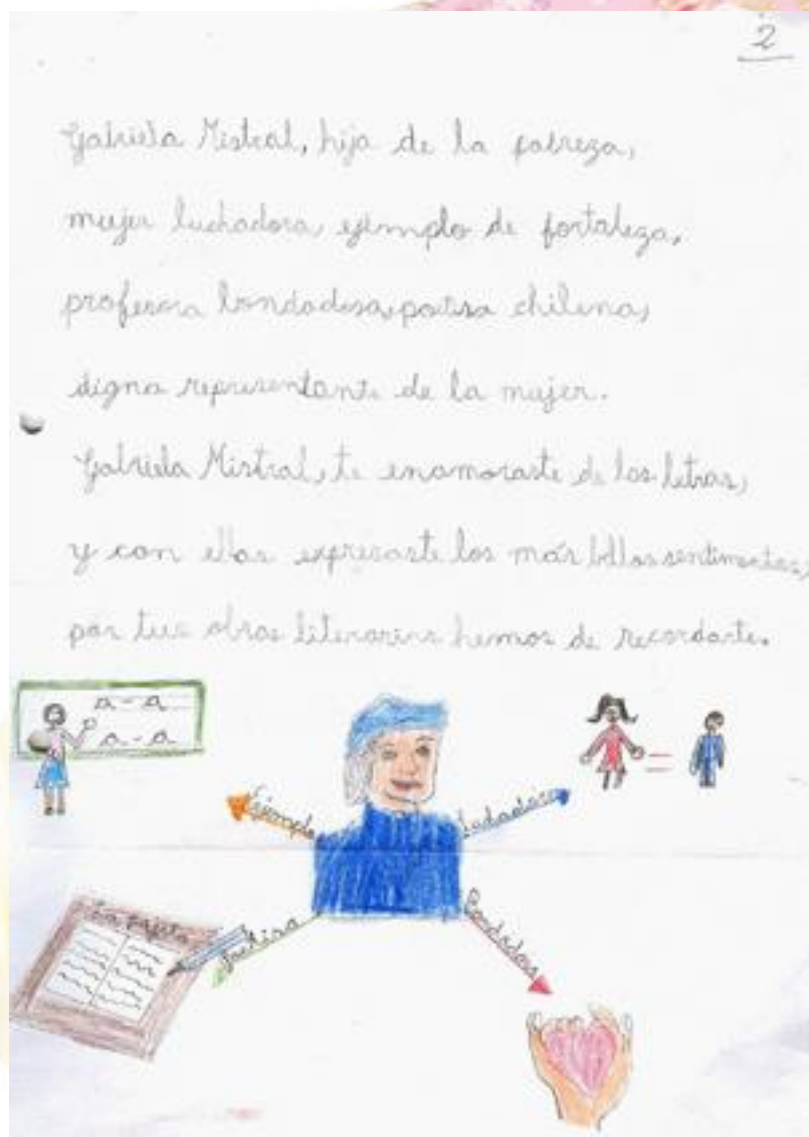 2
Gabriela Mistral, hija de la pobreza,
mujer luchadora, ejemplo de fortaleza,
profesora bondadosa, poetisa chilena,
digna representante de la mujer.
Gabriela Mistral, te enamoraste de las letras,
y con ellas expresaste los más bellos sentimientos,
por tus obras literarias hemos de recordarte.
a-a
a-a
Ejemplo
Luchadora
=
La
Poetisa
Bondadosa